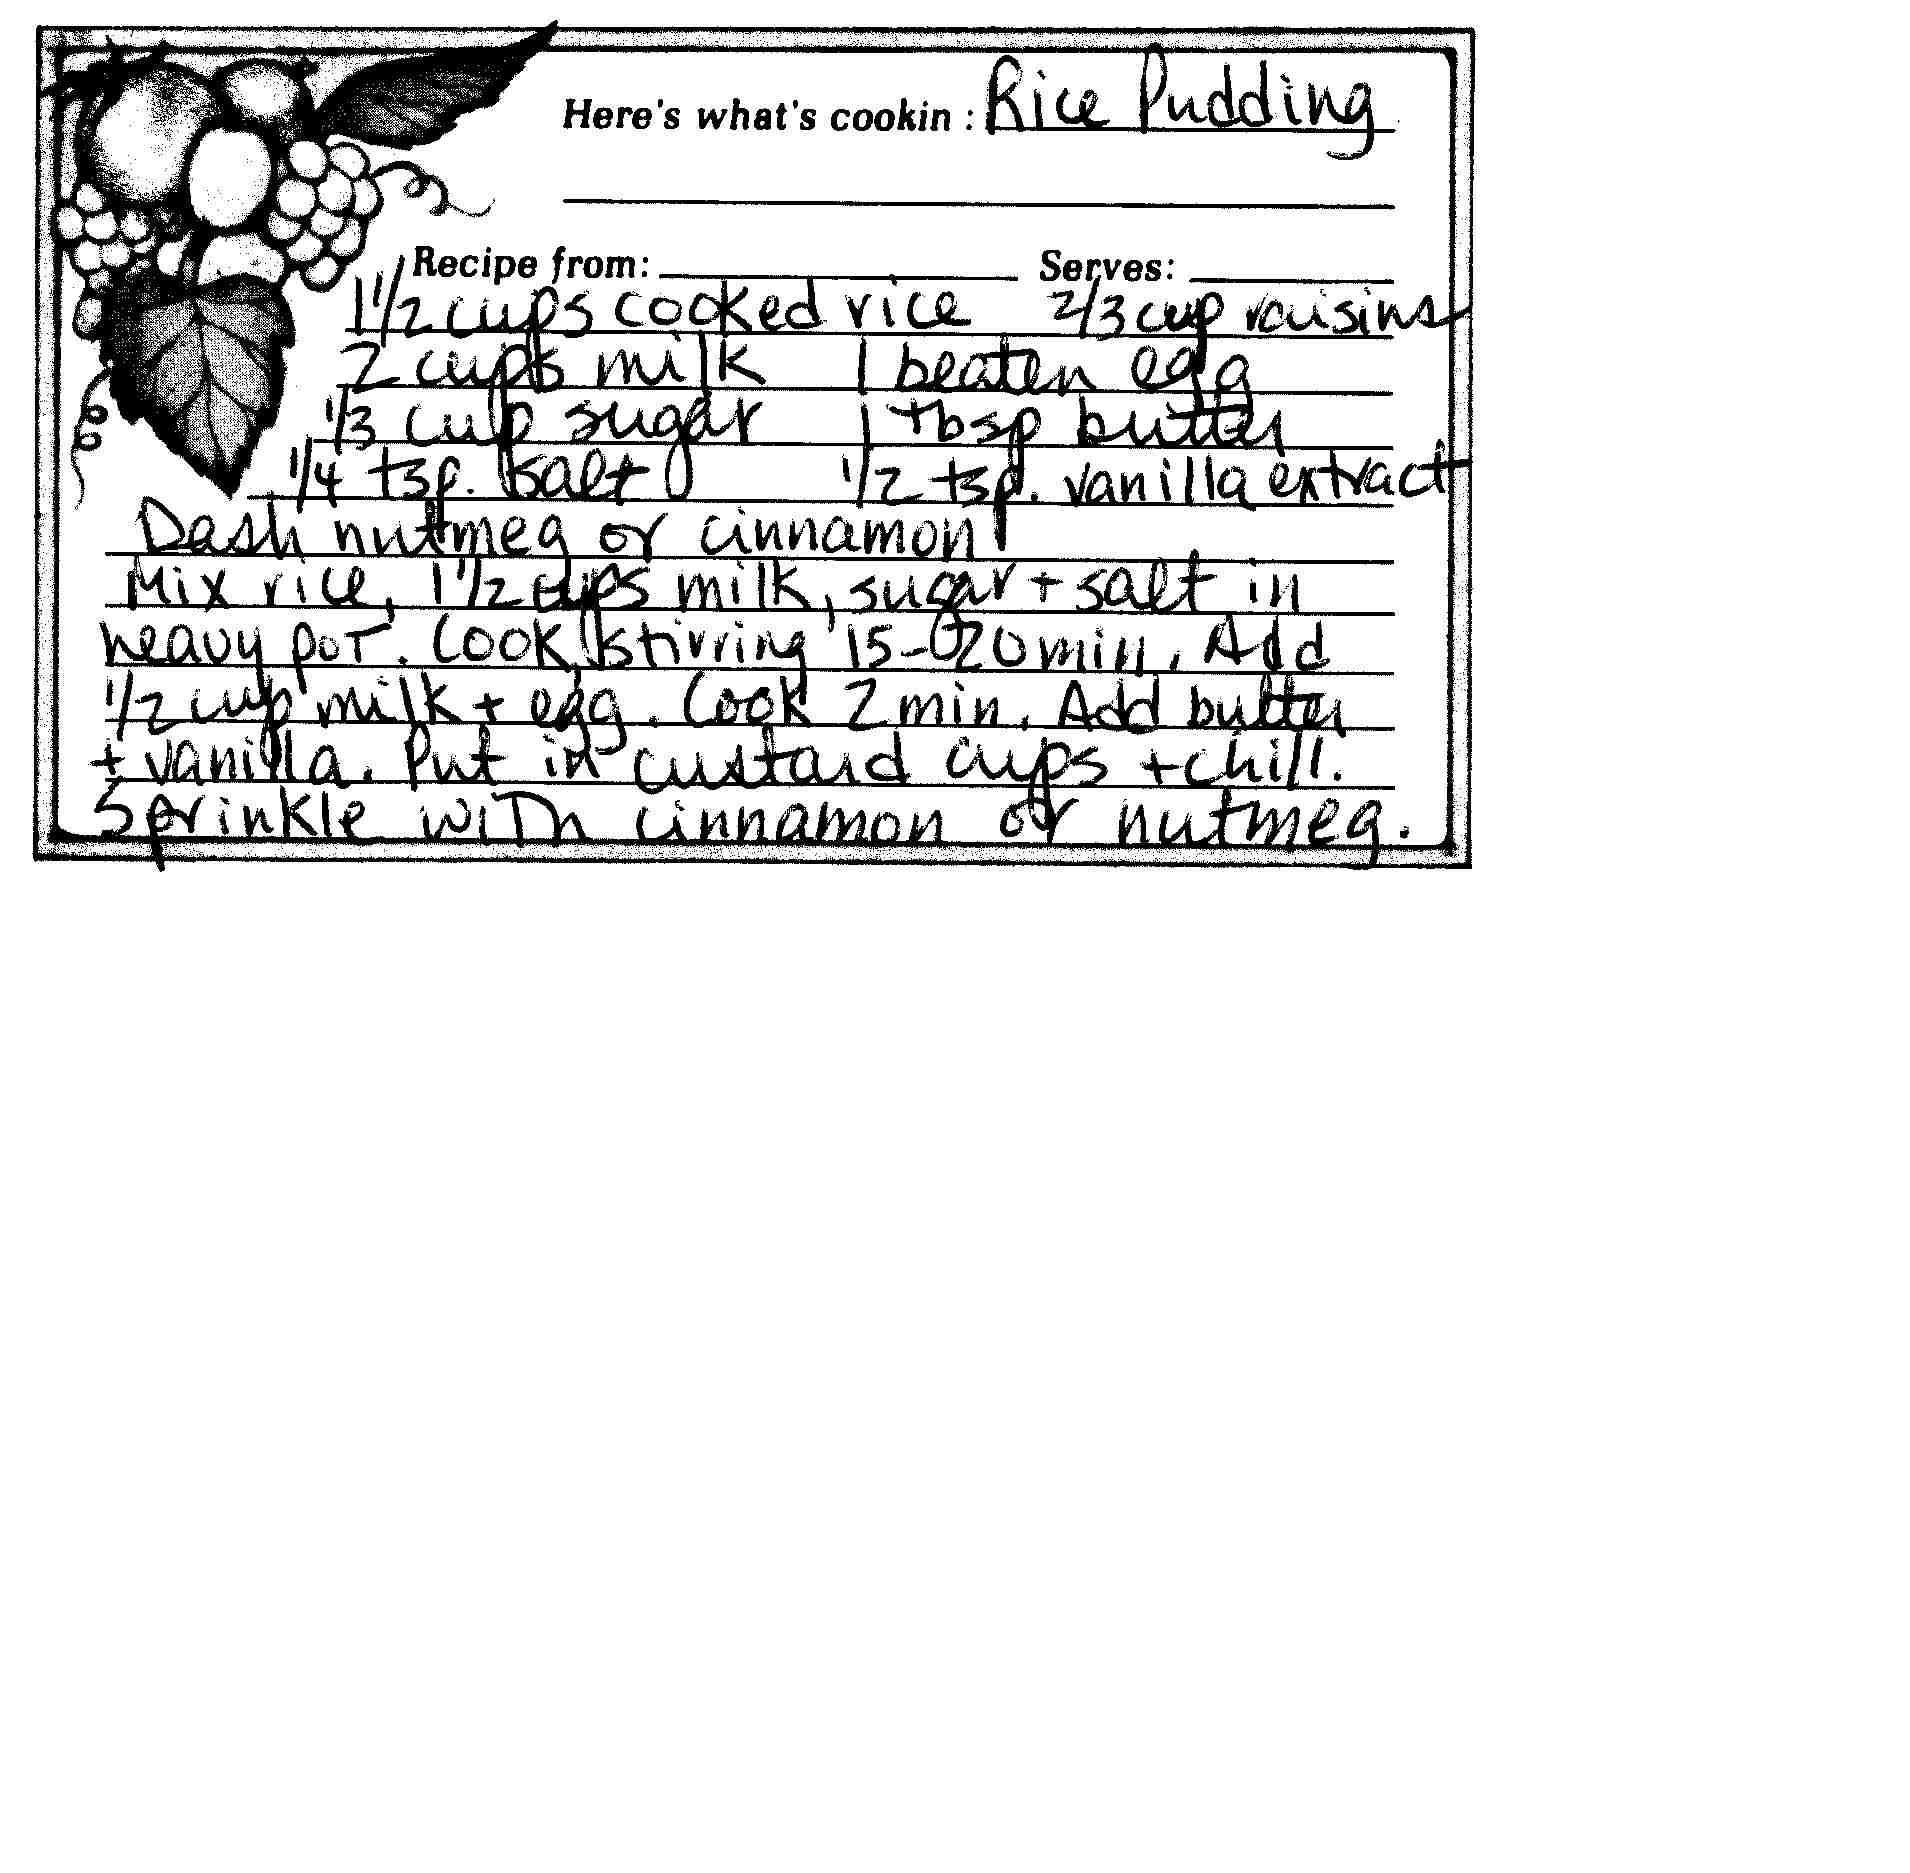 Here's what's cookin : Rice Pudding
Recipe from: Serves:
1 1/2 cups cooked rice 2/3 cup raisins
2 cups milk 1 beaten egg
1/3 cup sugar 1 tbsp butter
1/4 tsp. salt 1/2 tsp. vanilla extract
Dash nutmeg or cinnamon
Mix rice, 1 1/2 cups milk, sugar + salt in
heavy pot. Cook, stirring 15-20 min. Add
1/2 cup milk + egg. Cook 2 min. Add butter
+ vanilla. Put in custard cups + chill.
Sprinkle with cinnamon or nutmeg.